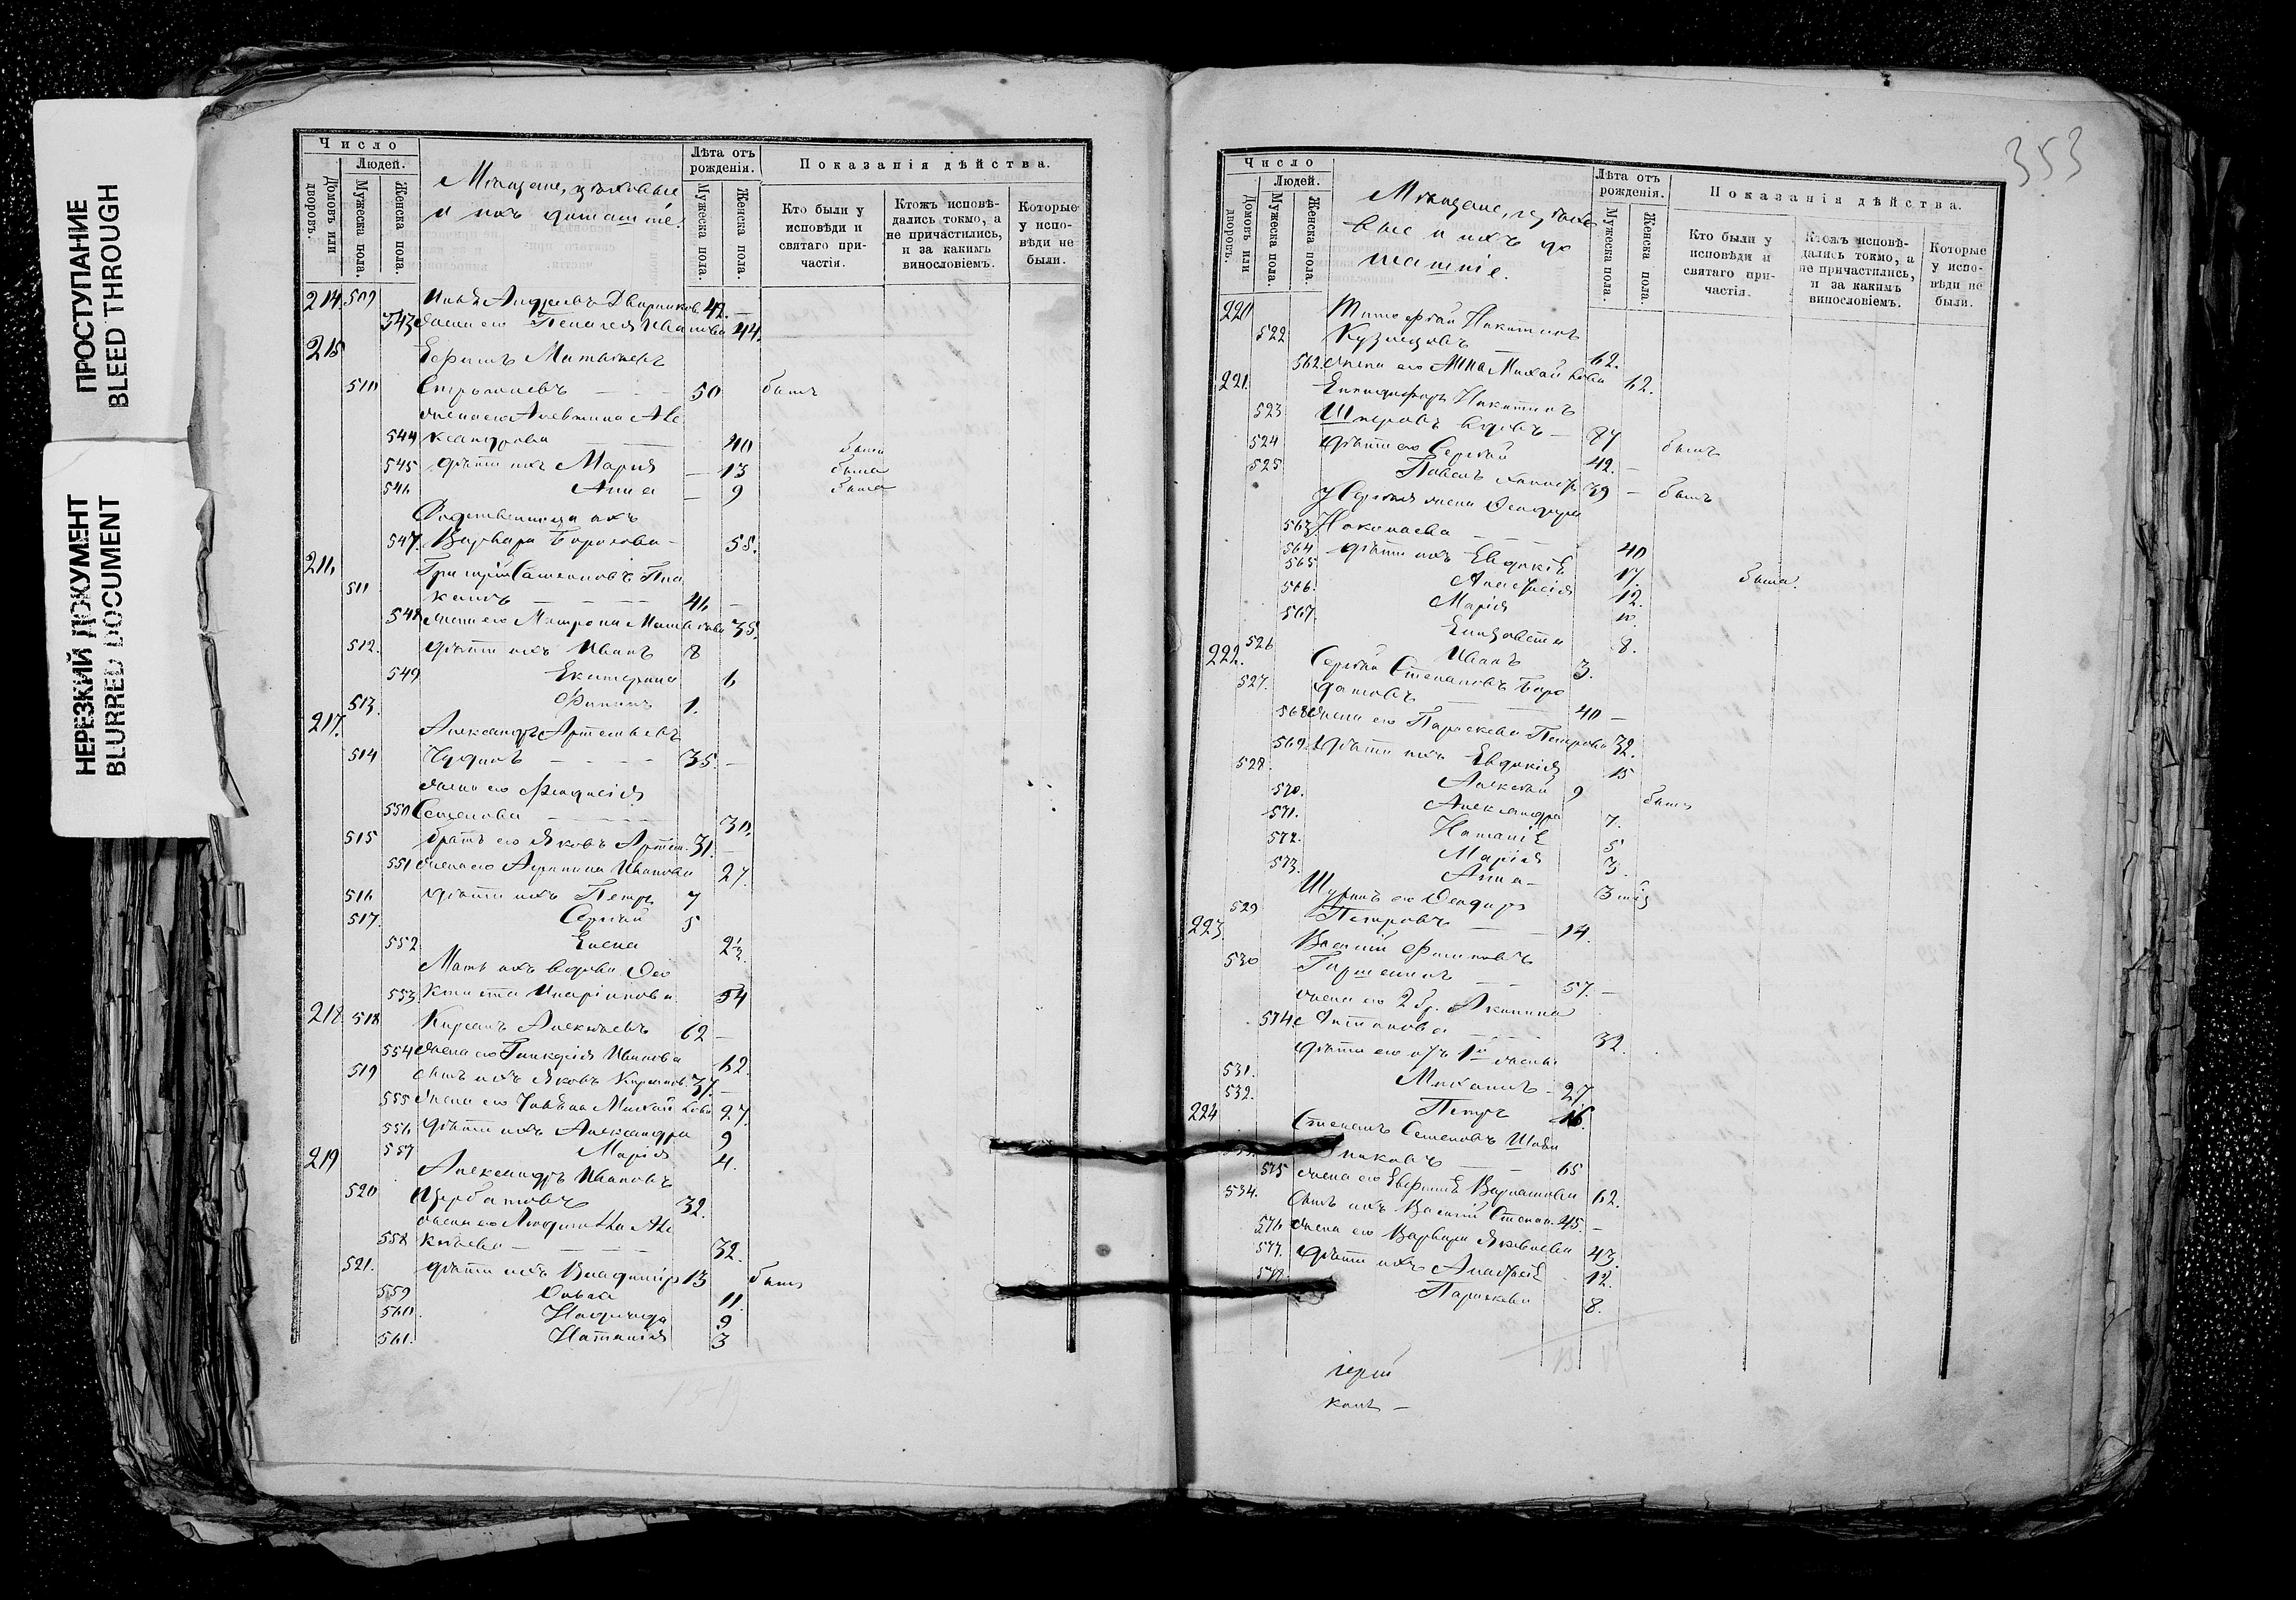 ПРОСТУПАНИЕ
BLEED THROUGH
НЕРЕЗКИЙ ДОКУМЕНТ
BLURRED DOCUMENT
Число
Людей.
Домовъ или дворовъ.
Мужеска пола.
Женска пола.
Мѣщане, цѣховые
и ихъ домашніе.
Лѣта отъ рожденія.
Мужеска пола.
Женска пола.
Показанія дѣйства.
Кто были у исповѣди и святаго причастія.
Ктожъ исповѣдались токмо, а не причастились, и за какимъ винословіемъ.
Которые у исповѣди не были.
214. 509 Андреевъ Дворниковъ 42. —
543 жена его Пелагея Иванова 44.
215 Ефимъ Матвѣевъ
510 50 былъ
жена его Алевтина Але
544 ксандрова 40 была
545 дѣти ихъ Марія — 13 была
546 Анна — 9 была
Родственница ихъ
547. Варвара Борисова — 58.
216 Григорій
511 46 —
548 жена его Матрона Матвѣева 38.
512. дѣти ихъ Иванъ 8
549 Екатерина 6
513. Филипъ 1.
217. Александръ Артемьевъ
514 35. —
жена его Феодосія
550 Семенова 30.
515 братъ его Яковъ Артем. 31. —
551 жена его Агрипина Иванова 27.
516 дѣти ихъ Петръ 7
517. Сергѣй 5
552 Елена 2½
Мать ихъ вдова Фео
553. ктиста Иларіонова 54
218. 518 Кирсанъ Алексѣевъ 62 —
554 жена его Гликерія Иванова 62.
519 сынъ ихъ Яковъ Кирсанов. 37. —
555 жена его Михайлова 27.
556 дѣти ихъ Александра 9
557 Марія 4.
219 Александръ Ивановъ
520 Щербатовъ 32.
жена его Людмила Але
558 ксѣева — 32.
521. дѣти ихъ Владиміръ 13 былъ
559 Ольга 11.
560. Надежда 9
561. Наталія 3
353
Число
Людей.
Домовъ или дворовъ.
Мужеска пола.
Женска пола.
Мѣщане, цѣхо
вые и ихъ до
машніе.
Лѣта отъ рожденія.
Мужеска пола.
Женска пола.
Показанія дѣйства.
Кто были у исповѣди и святаго причастія.
Ктожъ исповѣдались токмо, а не причастились, и за какимъ винословіемъ.
Которые у исповѣди не были.
220 Тимофей Никитинъ
522 Кузнецовъ 62.
562. жена его Анна Михайлова 62.
221. Никитинъ
523 вдовъ — 87 былъ
524 дѣти его Сергѣй 42. —
525 Павелъ 39 — былъ
у Сергѣя жена Феодора
563. Николаева 40
564 дѣти ихъ Евдокія 17. была.
565 Анастасія 12.
566. Марія
567. Елизавета 8.
526 Иванъ 3.
222. Сергѣй Степановъ Боро
527. 40 —
568 жена его Параскева Петрова 32.
569. дѣти ихъ Евдокія 15
528. Алексѣй 9 былъ
570. Александра 7.
571. Наталія 5
572. Марія 3.
573. Анна —
Шуринъ его Феодоръ
529 Петровъ 14.
223. Василій Филиповъ
530 57. —
жена его 2 бр. Акилина
574. Антонова 32.
дѣти его отъ 1й жены
531. Михаилъ — 27.
532. Петръ 16.
224 Степанъ Семеновъ
65
575 жена его Варламова 62.
534. сынъ ихъ Василій Степан. 45 —
576 жена его Варвара Яковлева 43.
577. дѣти ихъ Анастасія 12.
578. Параскева 8.